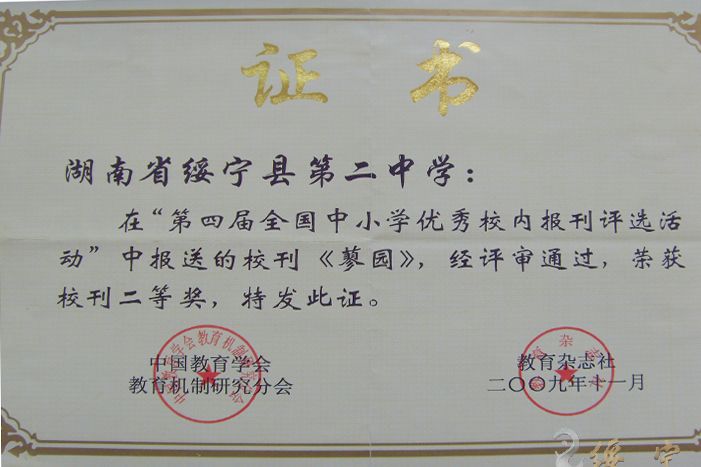 证 书
湖南省绥宁县第二中学：
在“第四届全国中小学优秀校内报刊评选活
动”中报送的校刊《蓼园》，经评审通过，荣获
校刊二等奖，特发此证。
中国教育学会
教育机制研究分会
教育杂志社
二〇〇九年十一月
绥宁